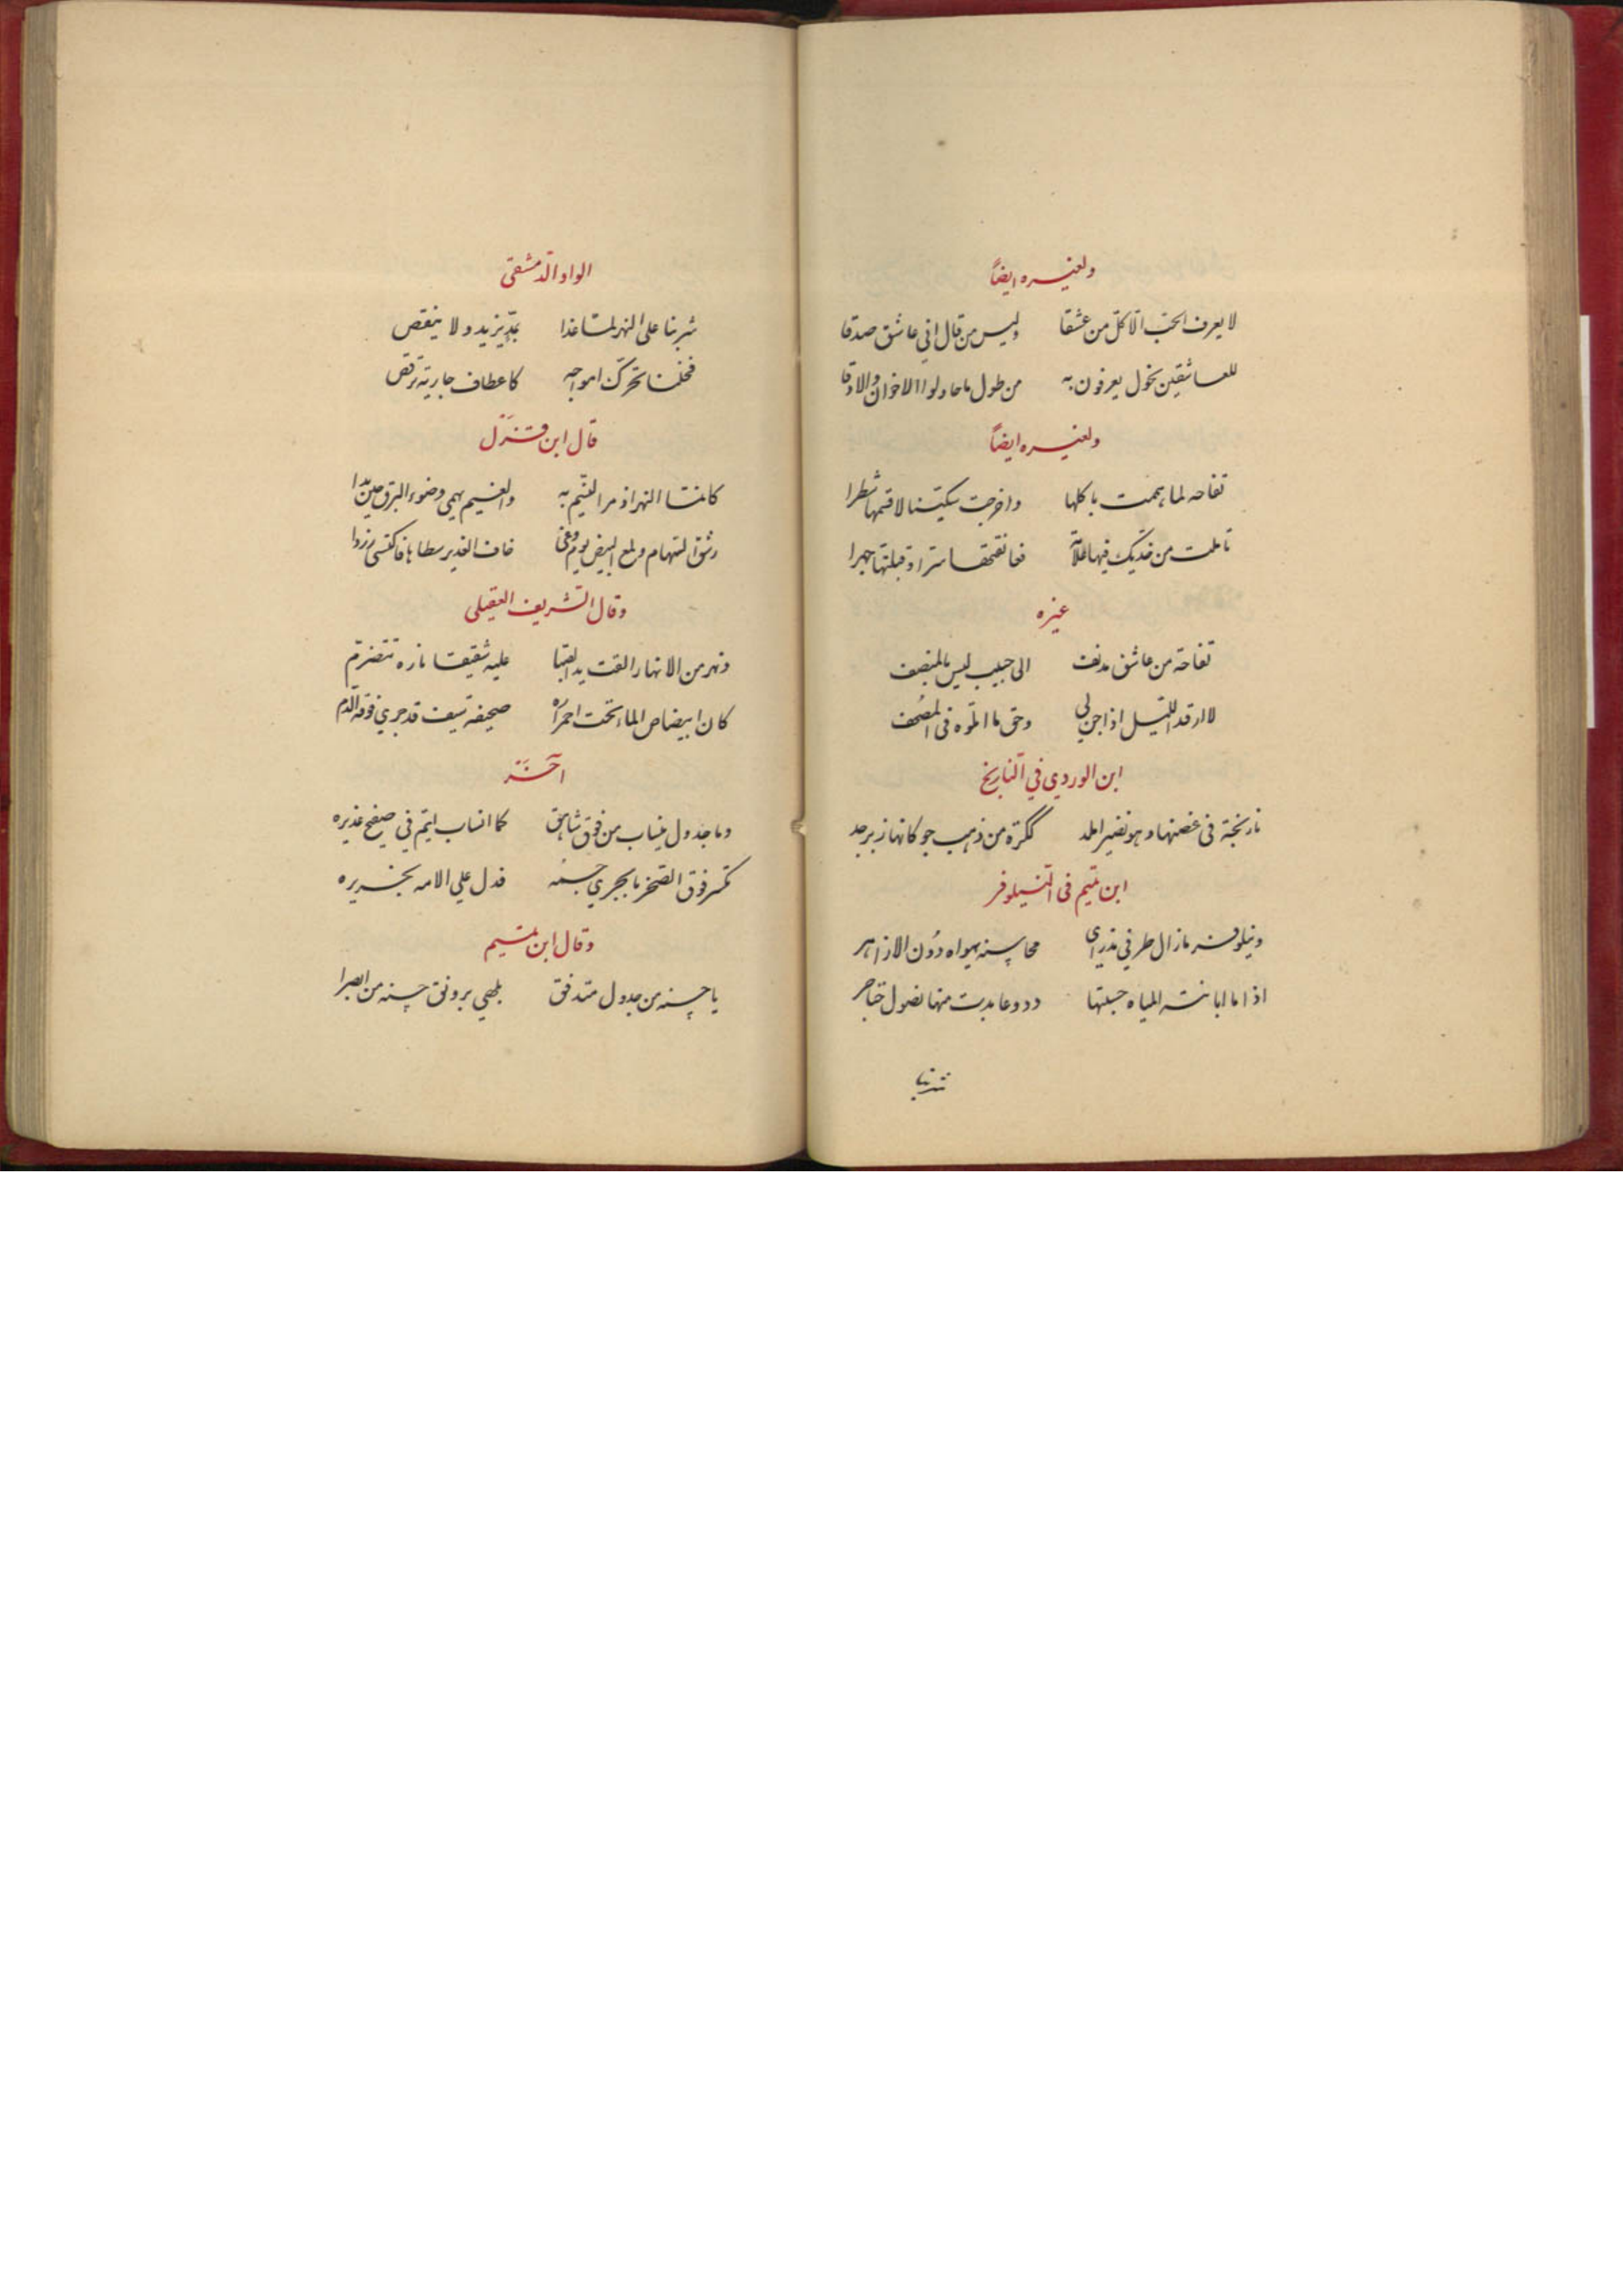 ولغيره ايضاً
لا يعرف الحبّ الّا كلّ من عشقا وليس من قال انّي عاشق صدقا
للعاشقين نحول يعرفون به من طول ما حاولوا الاخوان والارقا
ولغيره ايضاً
تفاحه لما هممت باكلها واخرجت سكّينا لاقسمها شطرا
تاملت من خدّيك فيها علامة فعانقتها سترا وقبلتها جهرا
غيره
تفاحة من عاشق مدنف الى حبيب ليس بالمنصف
لا ارقد اللّيل اذا جن لي وحق ما اتلوه فى المصحف
ابن الوردي في النارنج
نارنجة فى غصنها وهو نضير املد ككرة من ذهب جوكانها زبرجد
ابن تميم فى النّيلوفر
ونيلوفر مازال طرفي مذ راى محاسنه يهواه دُون الازاهر
اذا ما ابانته المياه حسبتها دروعا بدت منها نصول خناجر
شربنا
الواوا الدّمشقى
شربنا على النهر لمّا غدا بمدّ يزيد ولا ينقص
فخلنا تحرّك امواجه كاعطاف جارية ترقص
قال ابن قزل
كانما النهر اذ مر النّسيم به والغيم يهمي وضوء البرق حين بدا
رشق السّهام ولمع البيض يوم وغى خاف الغدير سطاها فاكتسى زردا
وقال الشّريف العقيلى
ونهر من الانهار القت يد الصّبا عليه شقيقا ناره تتضرّم
كان ابيضاض الماء تحت احمراره صحيفة سيف قد جرى فوقه الدّم
آخر
وما جدول ينساب من فوق شاهق كما انساب ايّم في صفح غديره
تكسر فوق الصّخر ما بجري جسمه فدل على الامه بخريره
وقال ابن تميم
يا حسنه من جدول متدفق يلهي برونق حسنه من ابصرا